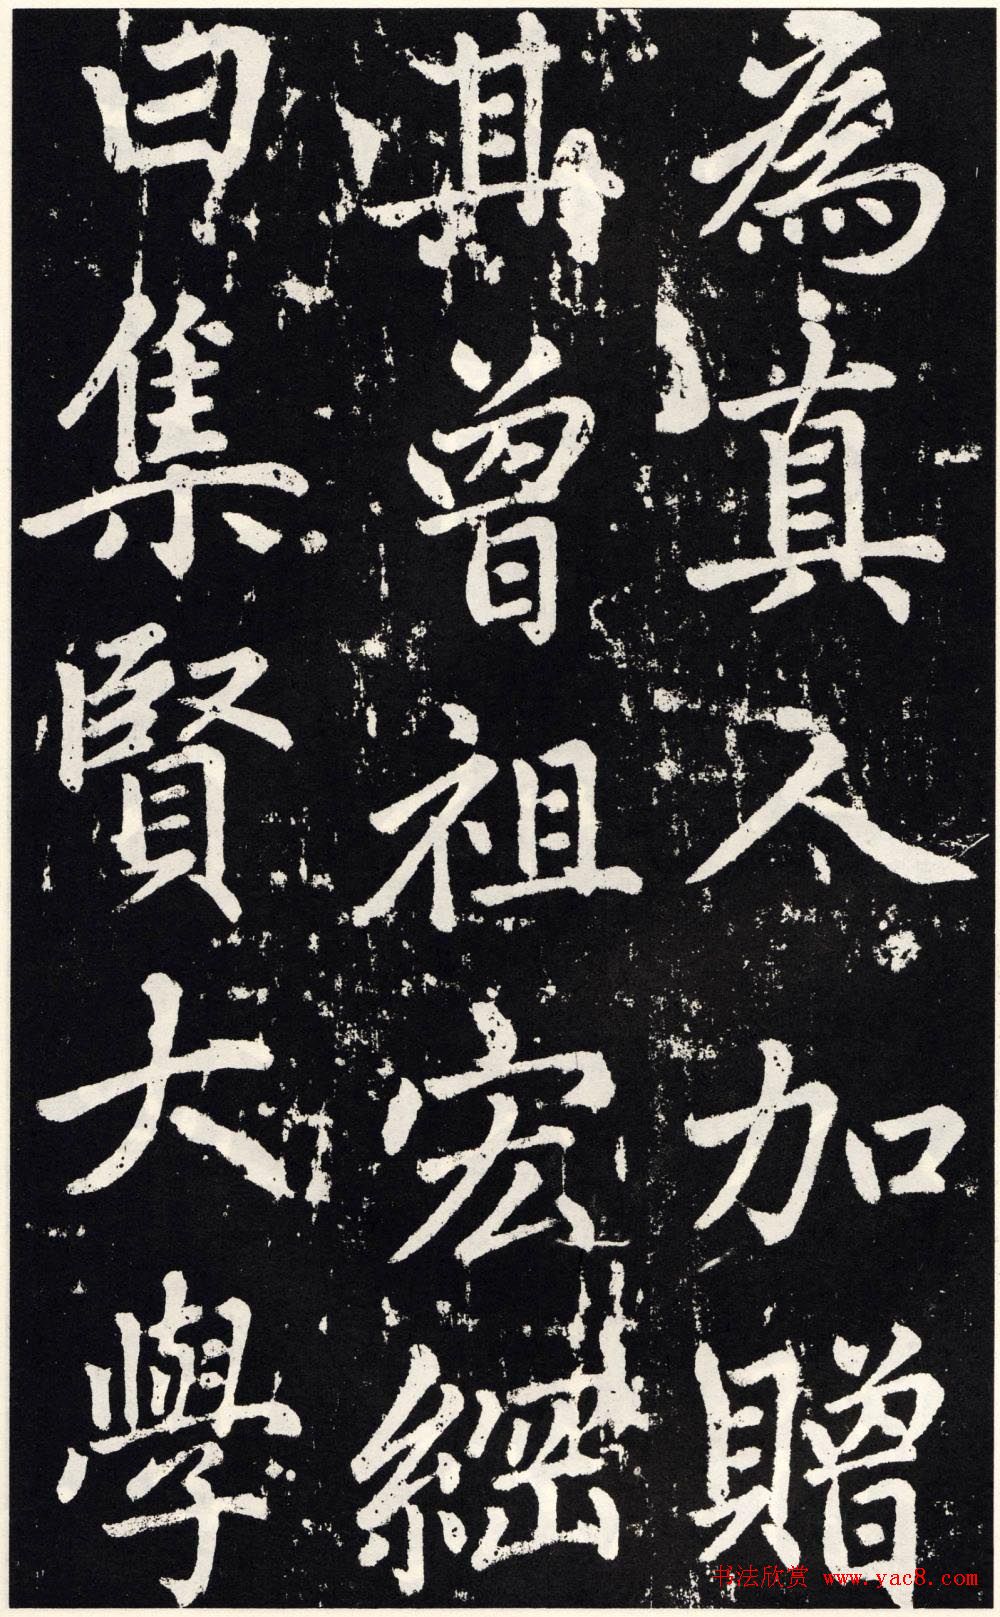 為真人加贈
其曾祖宏經
曰集賢大學
书法欣赏 www.yac8.com